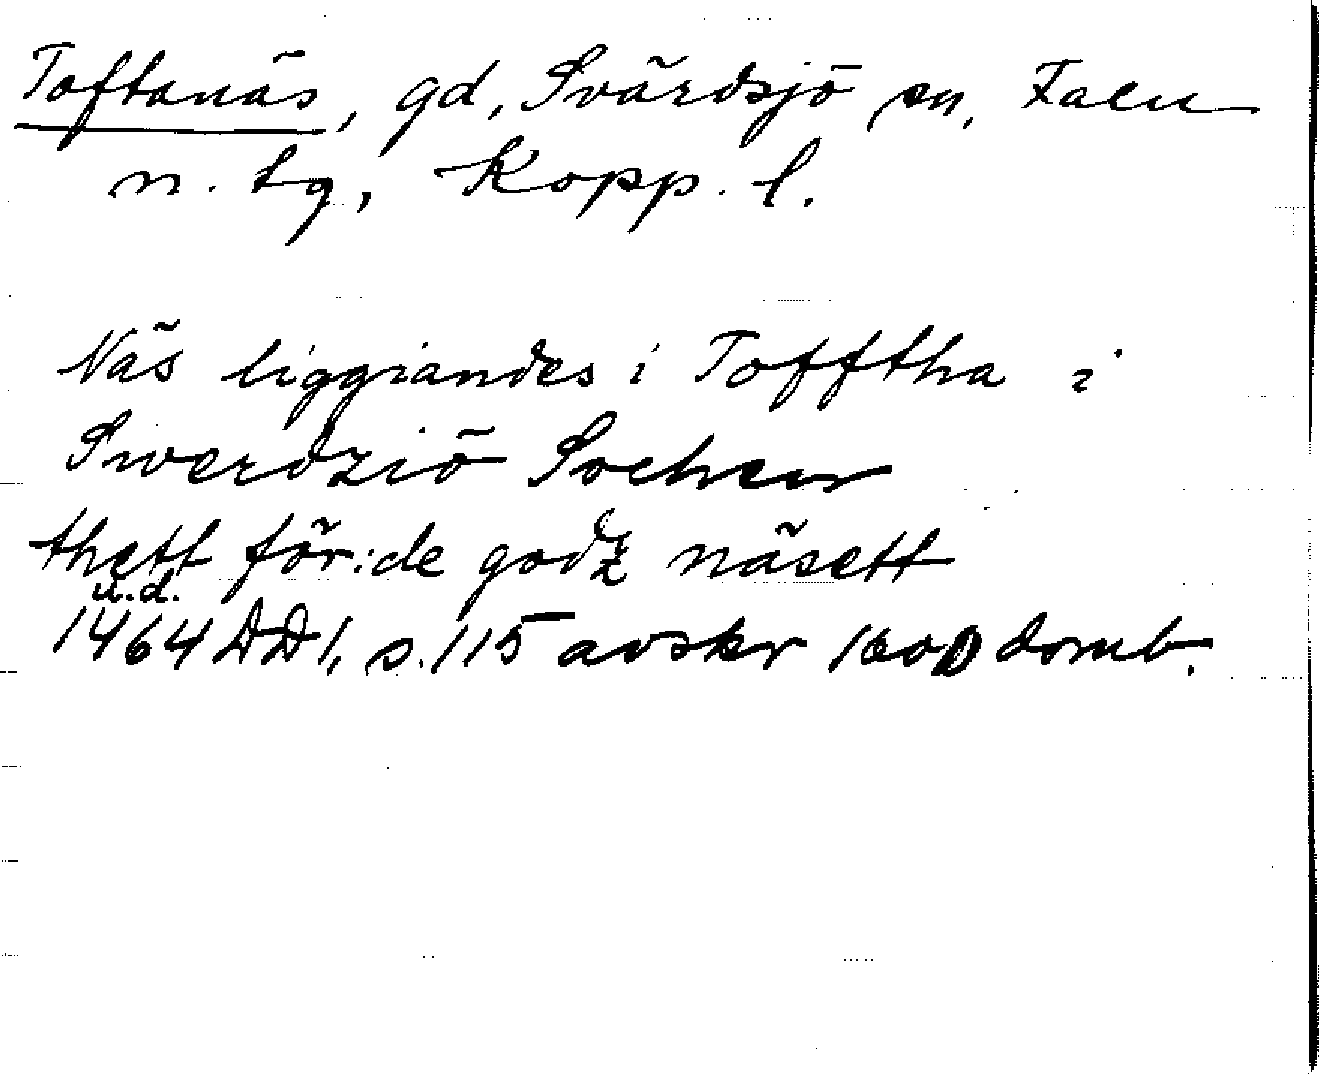 Toftanäs, gd, Svärdsjö sn, Falu
n. tg, Kopp. l.
Näs liggiandes i Tofftha i
Swerdziö Sochen
thett för:de godz näsett
u.d.
1464 DD1, s. 115 avskr 1600 domb.